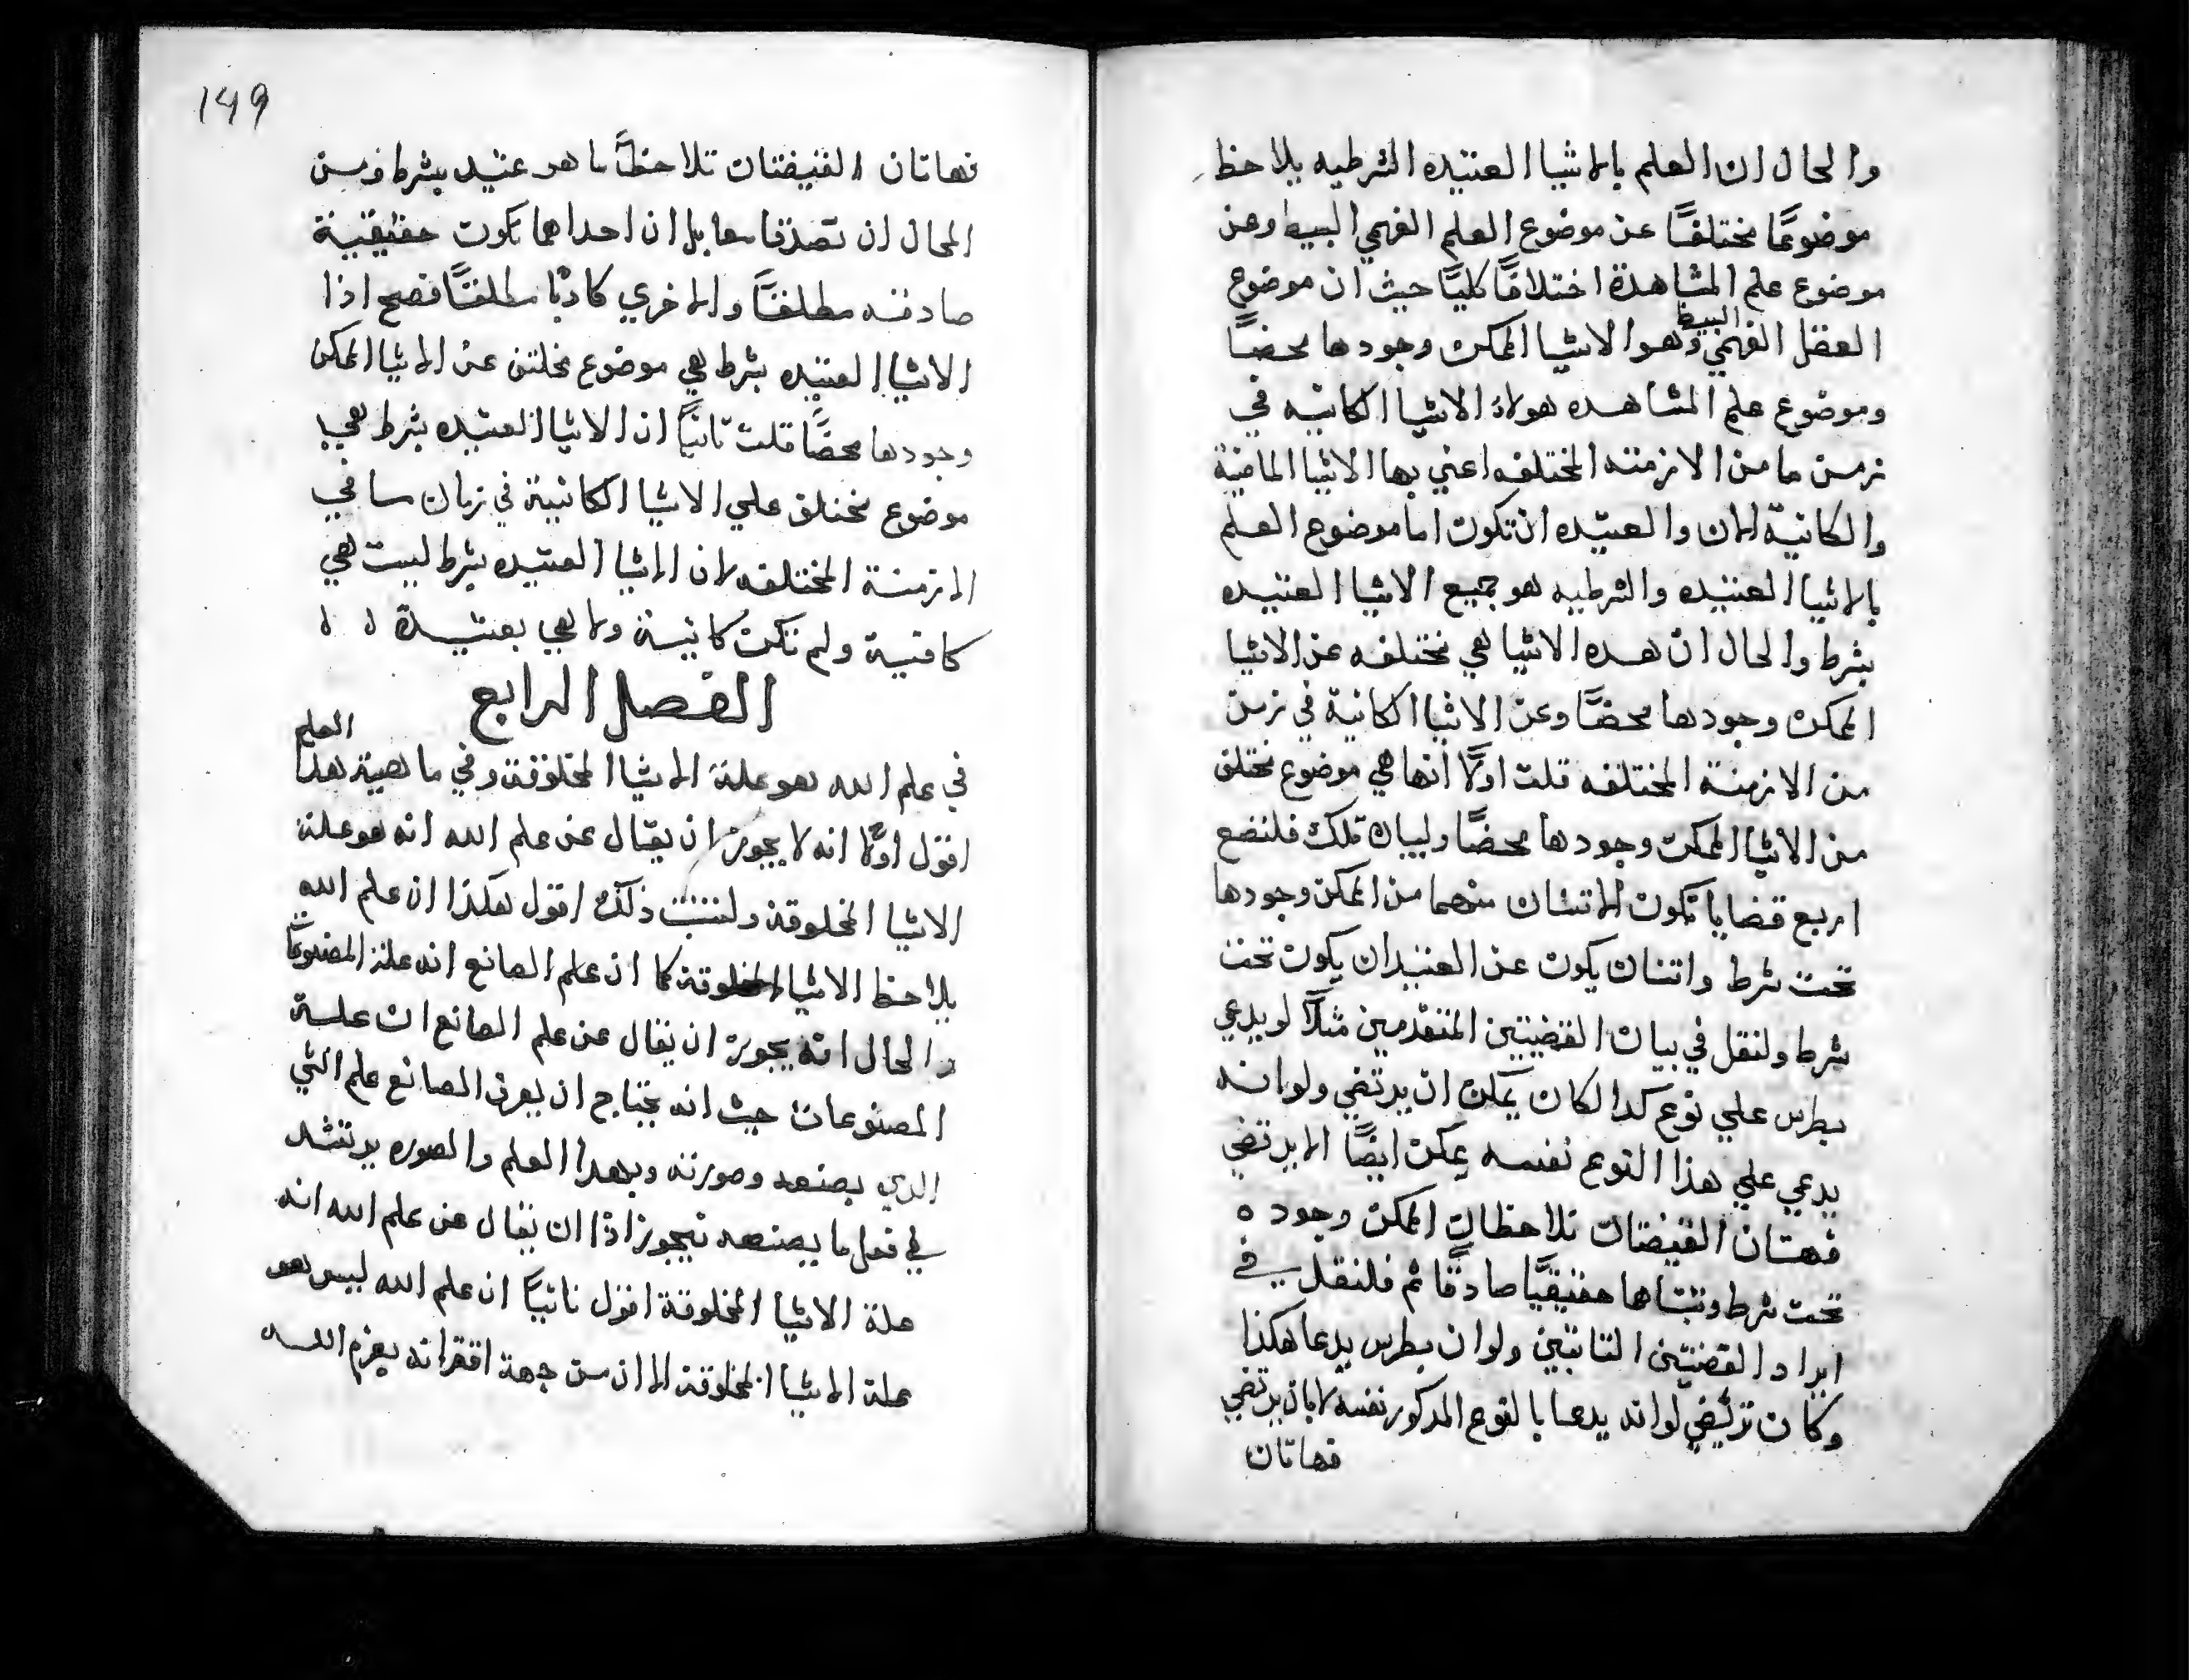 والحال ان العلم بالاشيا العتيده الشرطيه يلاحظ
موضوعًا مختلفًا عن موضوع العلم الفهمي البسيط وعن
موضوع علم المشاهدة اختلافًا كليًا حيث ان موضوع
العقل الفهمي البسيط وهو الاشيا الممكن وجودها محضًا
وموضوع علم المشاهده هولاء الاشيا الكاينه في
زمن ما من الازمنه المختلفه اعني بها الاشيا الماضية
والكاينة الان والعتيده ان تكون اما موضوع العلم
بالاشيا العتيده والشرطيه هو جميع الاشيا العتيده
بشرط والحال ان هده الاشيا هي مختلفه عن الاشيا
الممكن وجودها محضًا وعن الاشيا الكاينة في زمن
من الازمنة المختلفه قلت اولًا انها هي موضوع مختلف
من الاشيا الممكن وجودها محضًا ولبيان تلك فلنضع
اربع قضايا تكون الاتنتان منهما من الممكن وجودها
تحت شرط واتنتان يكون عن العتيد ان يكون تحت
شرط ولنقل في بيان القضيتين المتقدمين مثلًا لو يدعي
بطرس علي نوع كدا لكان يمكن ان يرتضي ولو انه
يدعي علي هذا النوع نفسه يمكن ايضًا الا يرتضي
فهتان القضيتان تلاحظان الممكن وجوده
تحت شرط وتبتاها حقيقيًا صادقًا ثم فلنقل في
ايراد القضيتين التانيتين ولو ان بطرس يدعا هكذا
وكان ترتضي لو انه يدعا بالنوع المدكور نفسه لابان يرتضي
فهاتان
149
فهاتان القضيتان تلاحظا ما هو عتيد بشرط ومن
المحال ان تصدقا معا بل ان احداهما تكون حقيقية
صادقه مطلقًا والاخري كادبًا مطلقًا فصح اذا
الاشيا العتيده بشرط هي موضوع مختلف عن الاشيا الممكن
وجودها محضًا قلت تانيًا ان الاشيا العتيده بشرط هي
موضوع مختلف علي الاشيا الكاينة في زمان ما في
الازمنة المختلفه لان الاشيا العتيده بشرط ليست هي
كاينة ولم تكن كاينة ولا هي بعتيدة ه ه
الفصل الرابع
في علم الله هو علة الاشيا المخلوقة وفي ماهية هدا العلم
اقول اولًا انه لا يجوز ان يقال عن علم الله انه هو علة
الاشيا المخلوقة ولنثبت ذلك اقول هكذا ان علم الله
يلاحظ الاشيا المخلوقة كما ان علم الصانع انه علة المصنوعات
والحال انه يجوز ان يقال عن علم الصانع ان علة
المصنوعات حيث انه يحتاج ان يعرف الصانع علم الشي
الدي يصنعه وصورته وبهدا العلم والصوره يرتشد
في فعل ما يصنعه فيجوز اذا ان يقال عن علم الله انه
علة الاشيا المخلوقة اقول تانيًا ان علم الله ليس هو
علة الاشيا المخلوقة الا ان من جهة اقترانه بعزم الله